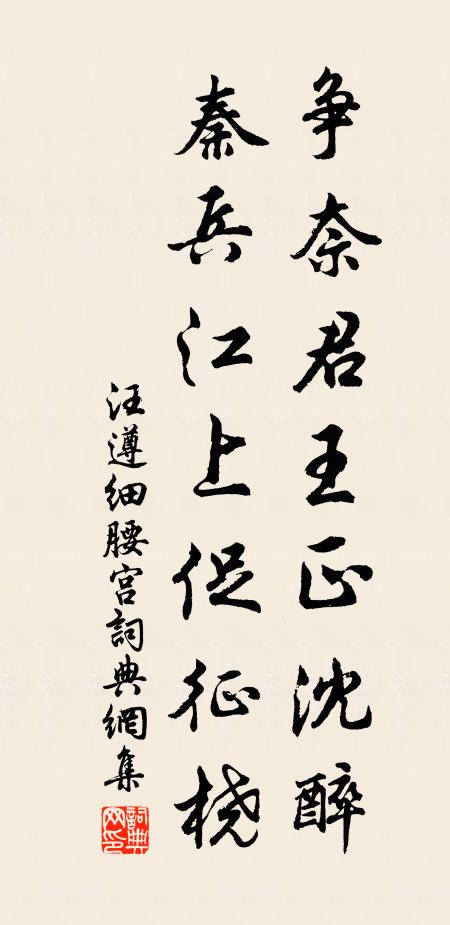 争奈君王正沈醉
秦兵江上促征桡
汪遵细腰宫詞典網集
詞典网印